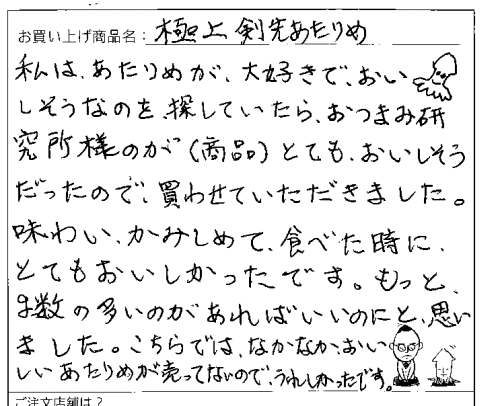 お買い上げ商品名: 極上剣先あたりめ
私は、あたりめが、大好きで、おい
しそうなのを、探していたら、おつまみ研
究所様のが(商品)とても、おいしそう
だったので、買わせていただきました。
味わい、かみしめて、食べた時に、
とてもおいしかったです。もっと、
数の多いのがあればいいのにと、思い
ました。こちらでは、なかなかおい
しいあたりめが売ってないので、うれしかったです。
ご注文店舗は?